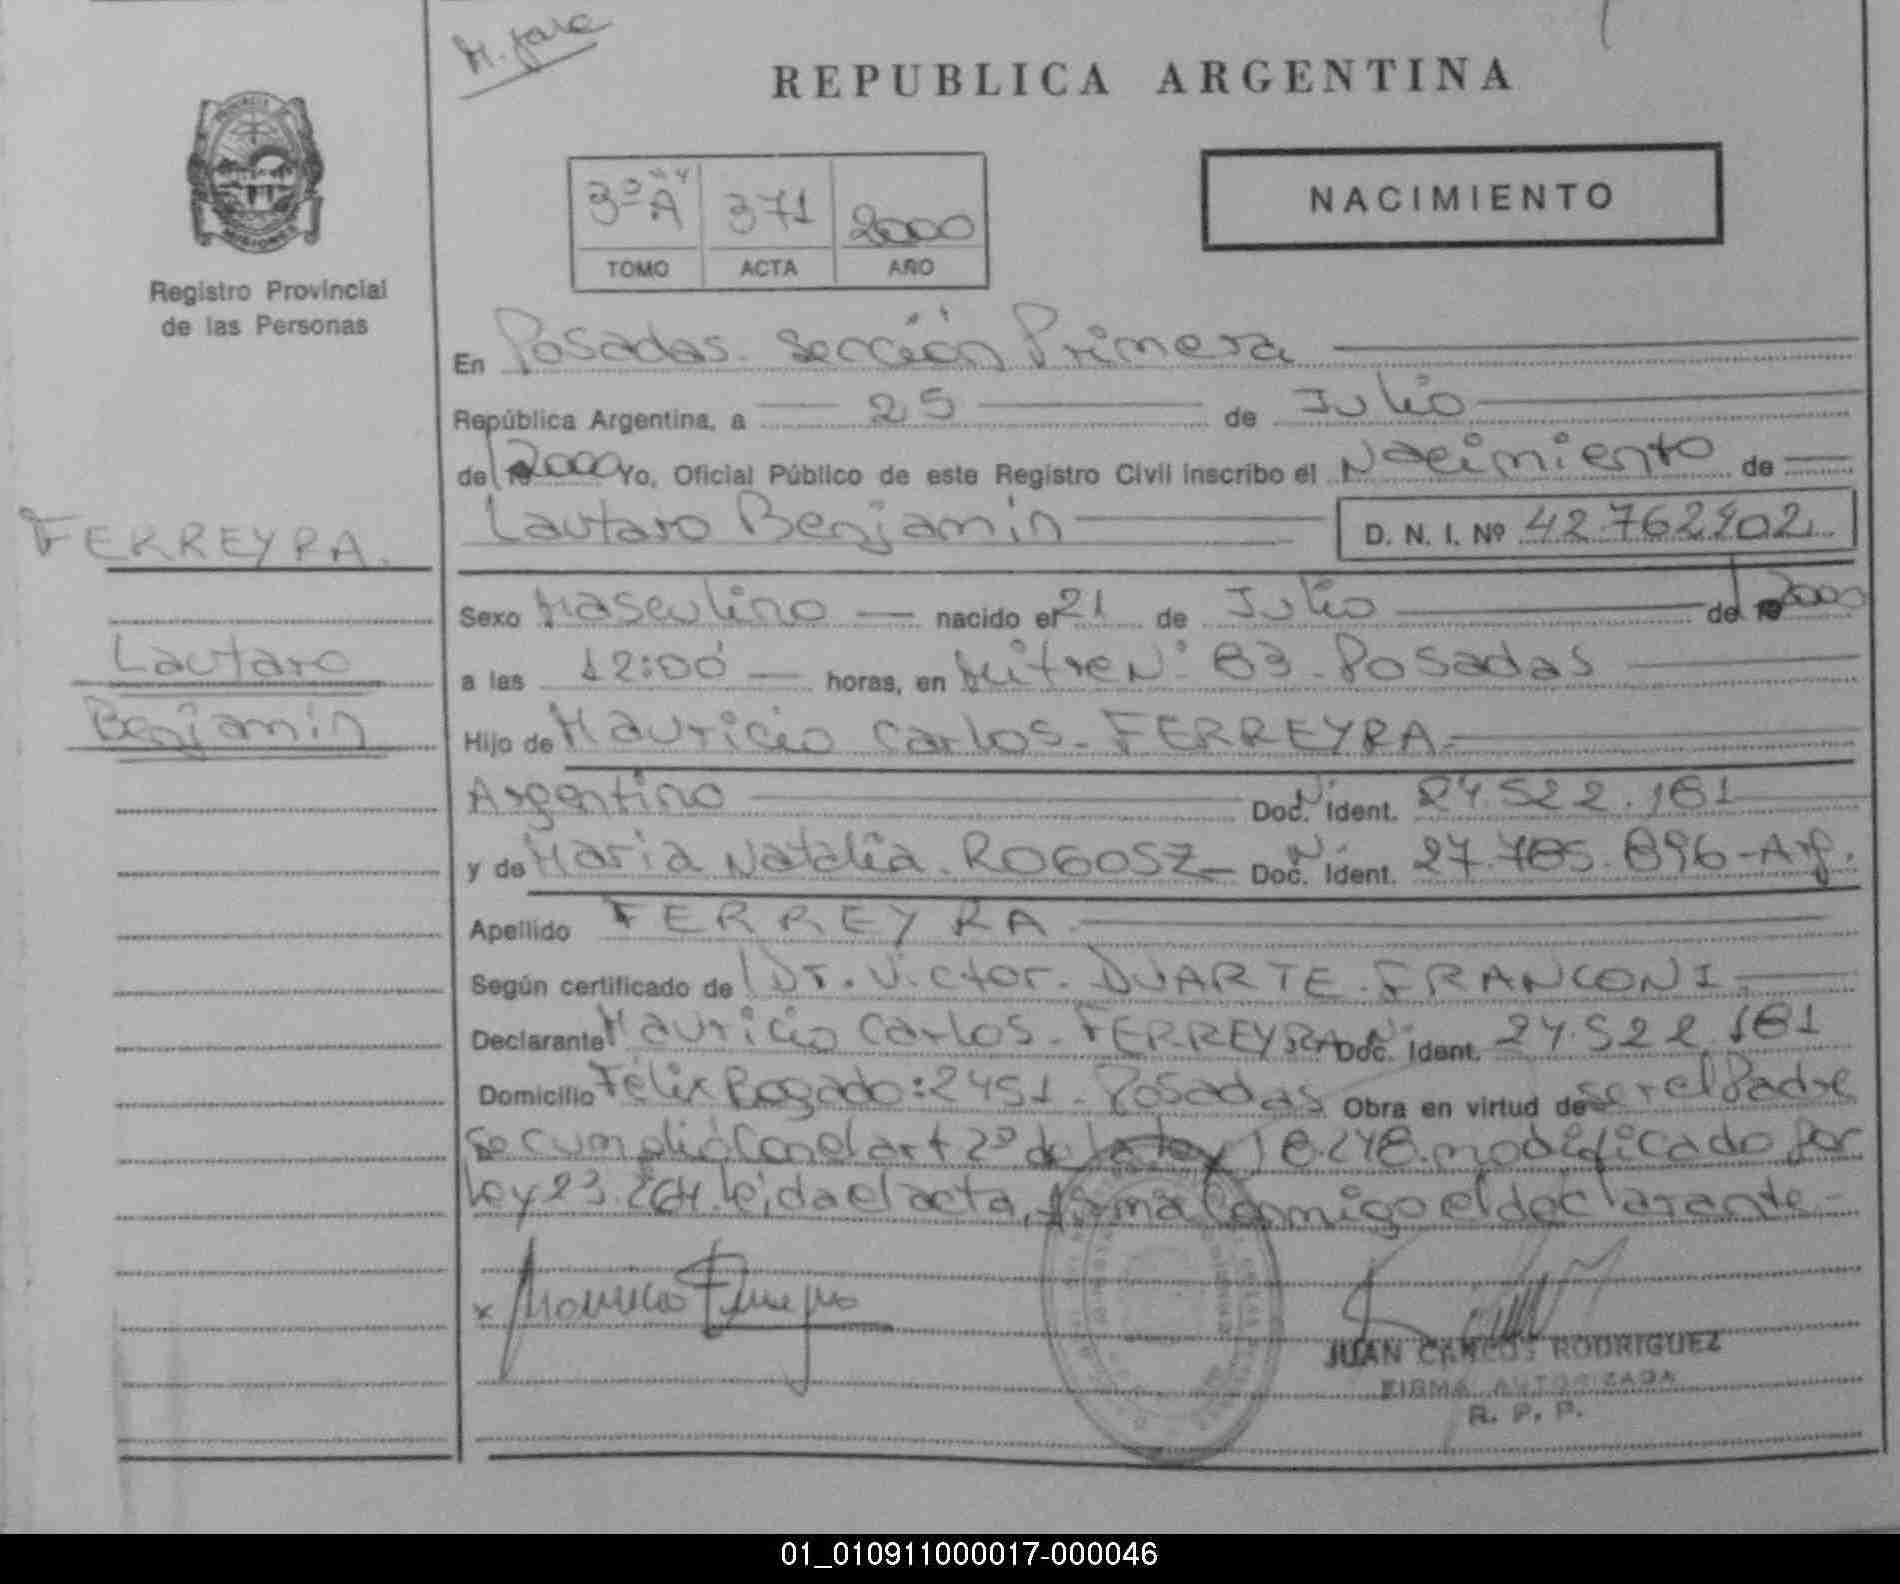 REPUBLICA ARGENTINA
NACIMIENTO
3º "A" 371 2000
TOMO ACTA AÑO
MISIONES
Registro Provincial
de las Personas
En Posadas. Sección "Primera
República Argentina, a 25 de Julio
de 2000 Yo, Oficial Público de este Registro Civil inscribo el Nacimiento de
Lautaro Benjamin D. N. I. Nº 42.762.902
FERREYRA.
Lautaro
Benjamin
Sexo Masculino nacido el 21 de Julio de 2000
a las 12:00 horas, en Mitre Nº 83. Posadas
Hijo de Mauricio Carlos. FERREYRA.
Argentino Doc. Nº Ident. 24.522.181
y de Maria Natalia. ROGOSZ Doc. Nº Ident. 27.785.896-Arg.
Apellido FERREYRA
Según certificado de Dr. Victor. DUARTE. FRANCONI.
Declarante Mauricio Carlos. FERREYRA Doc. Nº Ident. 24.522.181
Domicilio Félix Bogado: 2451. Posadas Obra en virtud de ser el Padre
se cumplió con el art 2º de la ley 18.248. modificado por
ley 23.264. leida el acta, firma conmigo el declarante.-
x
JUAN CARLOS RODRIGUEZ
FIRMA AUTORIZADA
R. P. P.
01_010911000017-000046